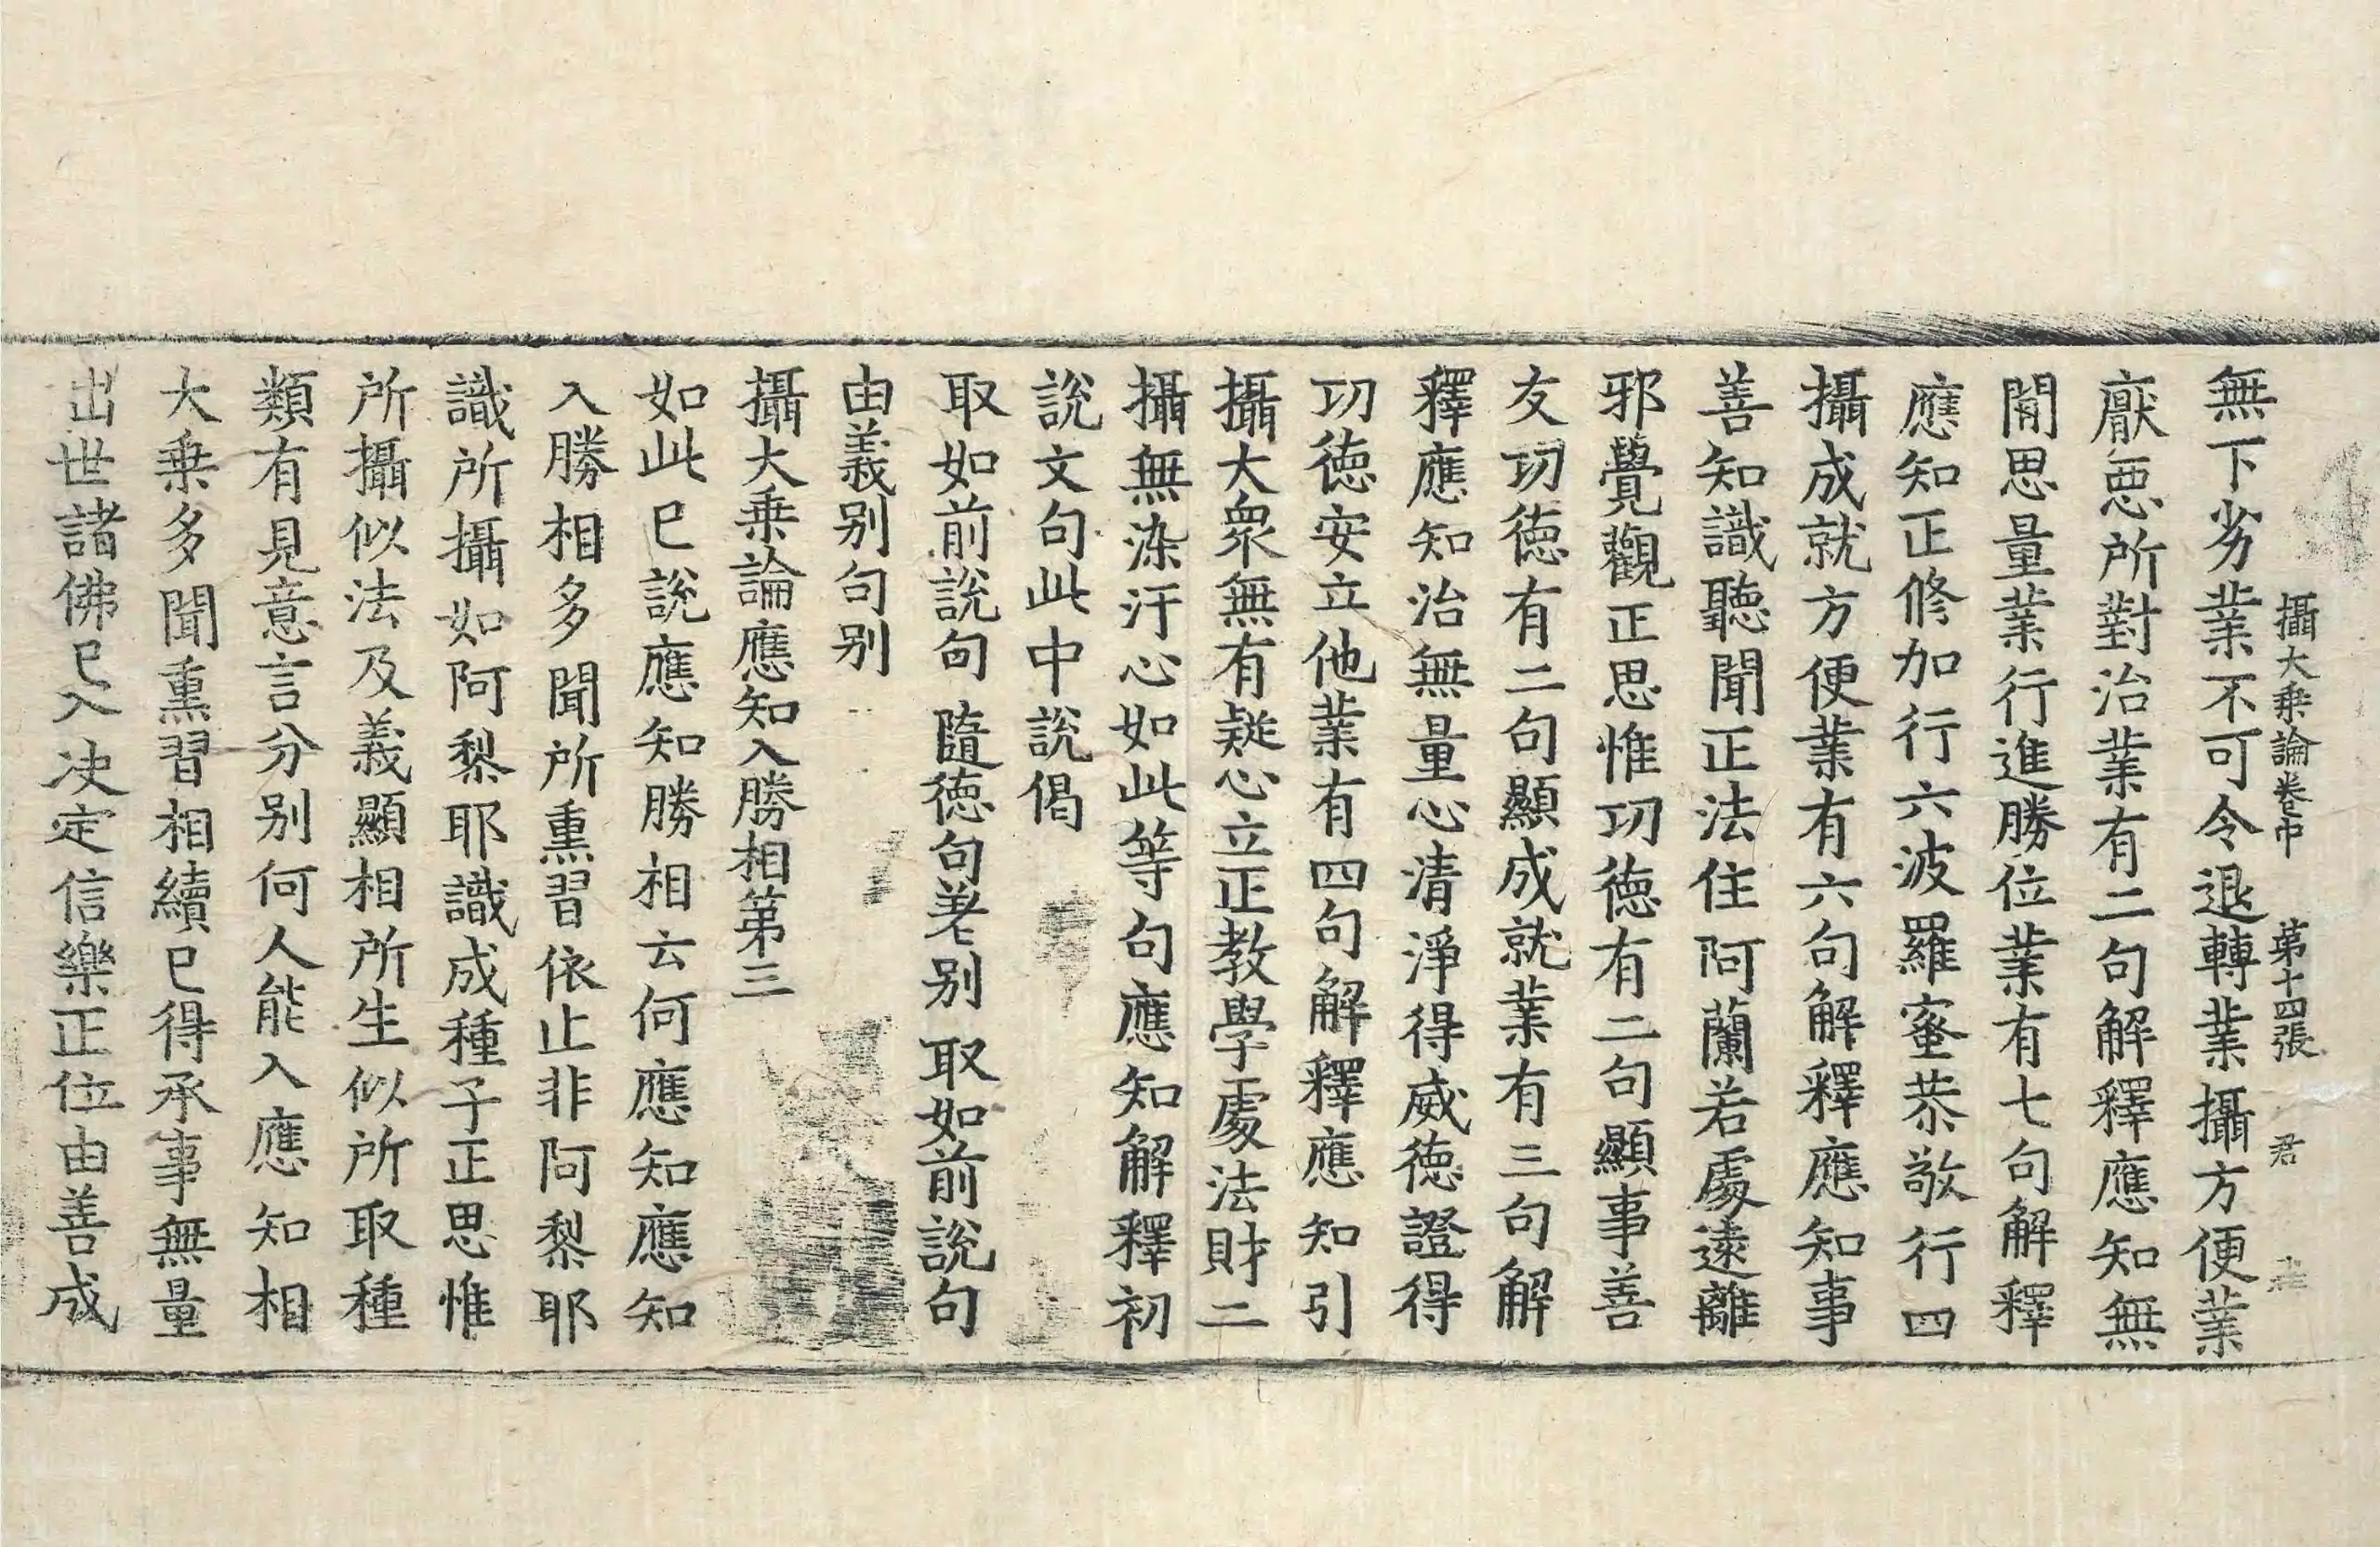 攝大乗論卷中 第十四張 君
無下劣業不可令退轉業攝方便業
厭惡所對治業有二句解釋應知無
閒思量業行進勝位業有七句解釋
應知正修加行六波羅蜜恭敬行四
攝成就方便業有六句解釋應知事
善知識聽聞正法住阿蘭若處遠離
邪覺觀正思惟功徳有二句顯事善
友功徳有二句顯成就業有三句解
釋應知治無量心清淨得威徳證得
功徳安立他業有四句解釋應知引
攝大衆無有疑心立正教學處法財二
攝無染汙心如此等句應知解釋初
說文句此中說偈
取如前說句 隨徳句差别 取如前說句
由義别句别
攝大乗論應知入勝相第三
如此已說應知勝相云何應知應知
入勝相多聞所熏習依止非阿黎耶
識所攝如阿黎耶識成種子正思惟
所攝似法及義顯相所生似所取種
類有見意言分别何人能入應知相
大乗多聞熏習相續已得承事無量
出世諸佛已入决定信樂正位由善成